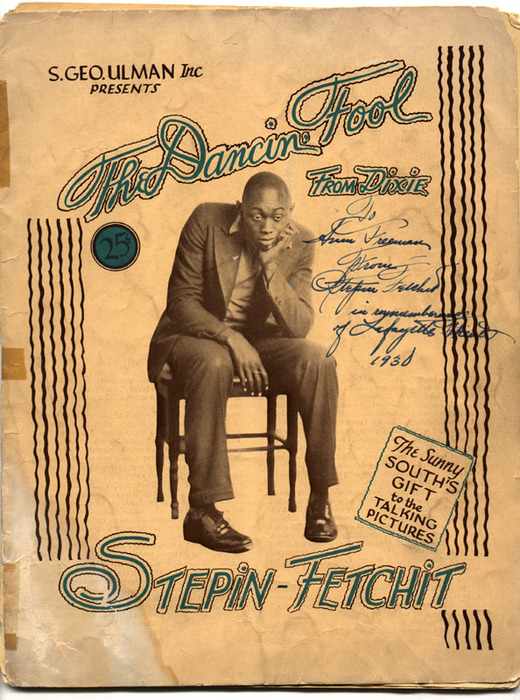 S. GEO. ULMAN Inc
PRESENTS
The Dancin' Fool
FROM DIXIE
25¢
To
Freeman
Stepin Fetchit
in remembrance
of Lafayette
1930
The Sunny
SOUTH'S
GIFT
to the
TALKING
PICTURES
STEPIN-FETCHIT